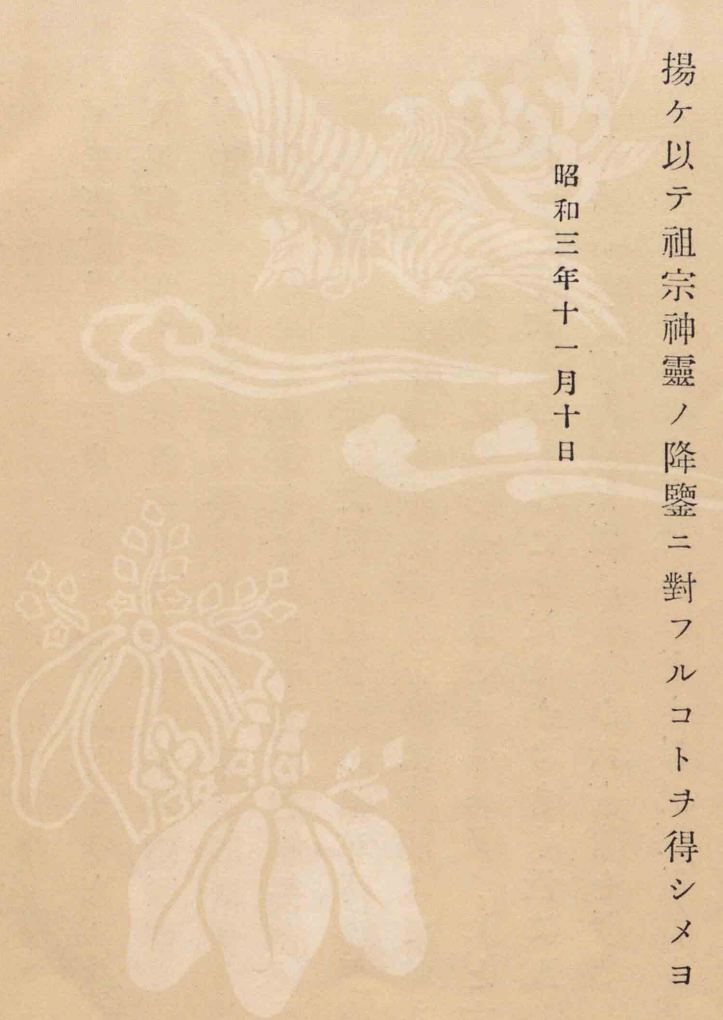 揚ケ以テ祖宗神靈ノ降鑒ニ對フルコトヲ得シメヨ
昭和三年十一月十日